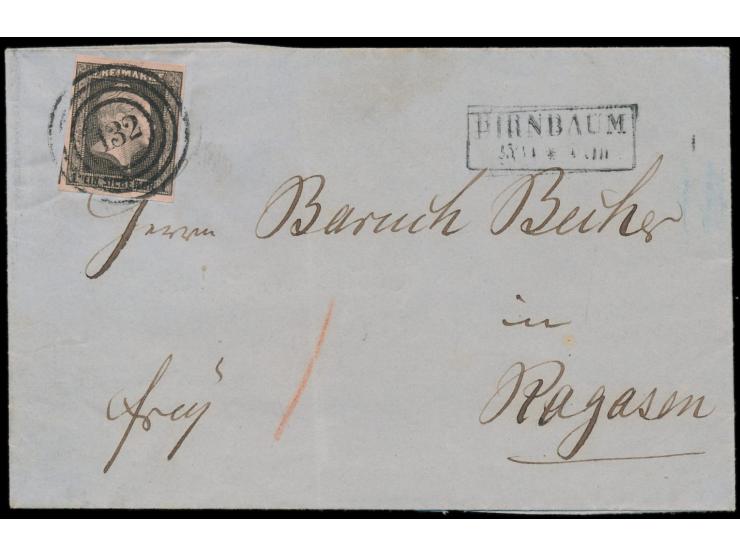 FREIMARKE
132
1 EIN SILBERGR. 1
BIRNBAUM
Herrn Baruch Becher
in
Ragasen
frey